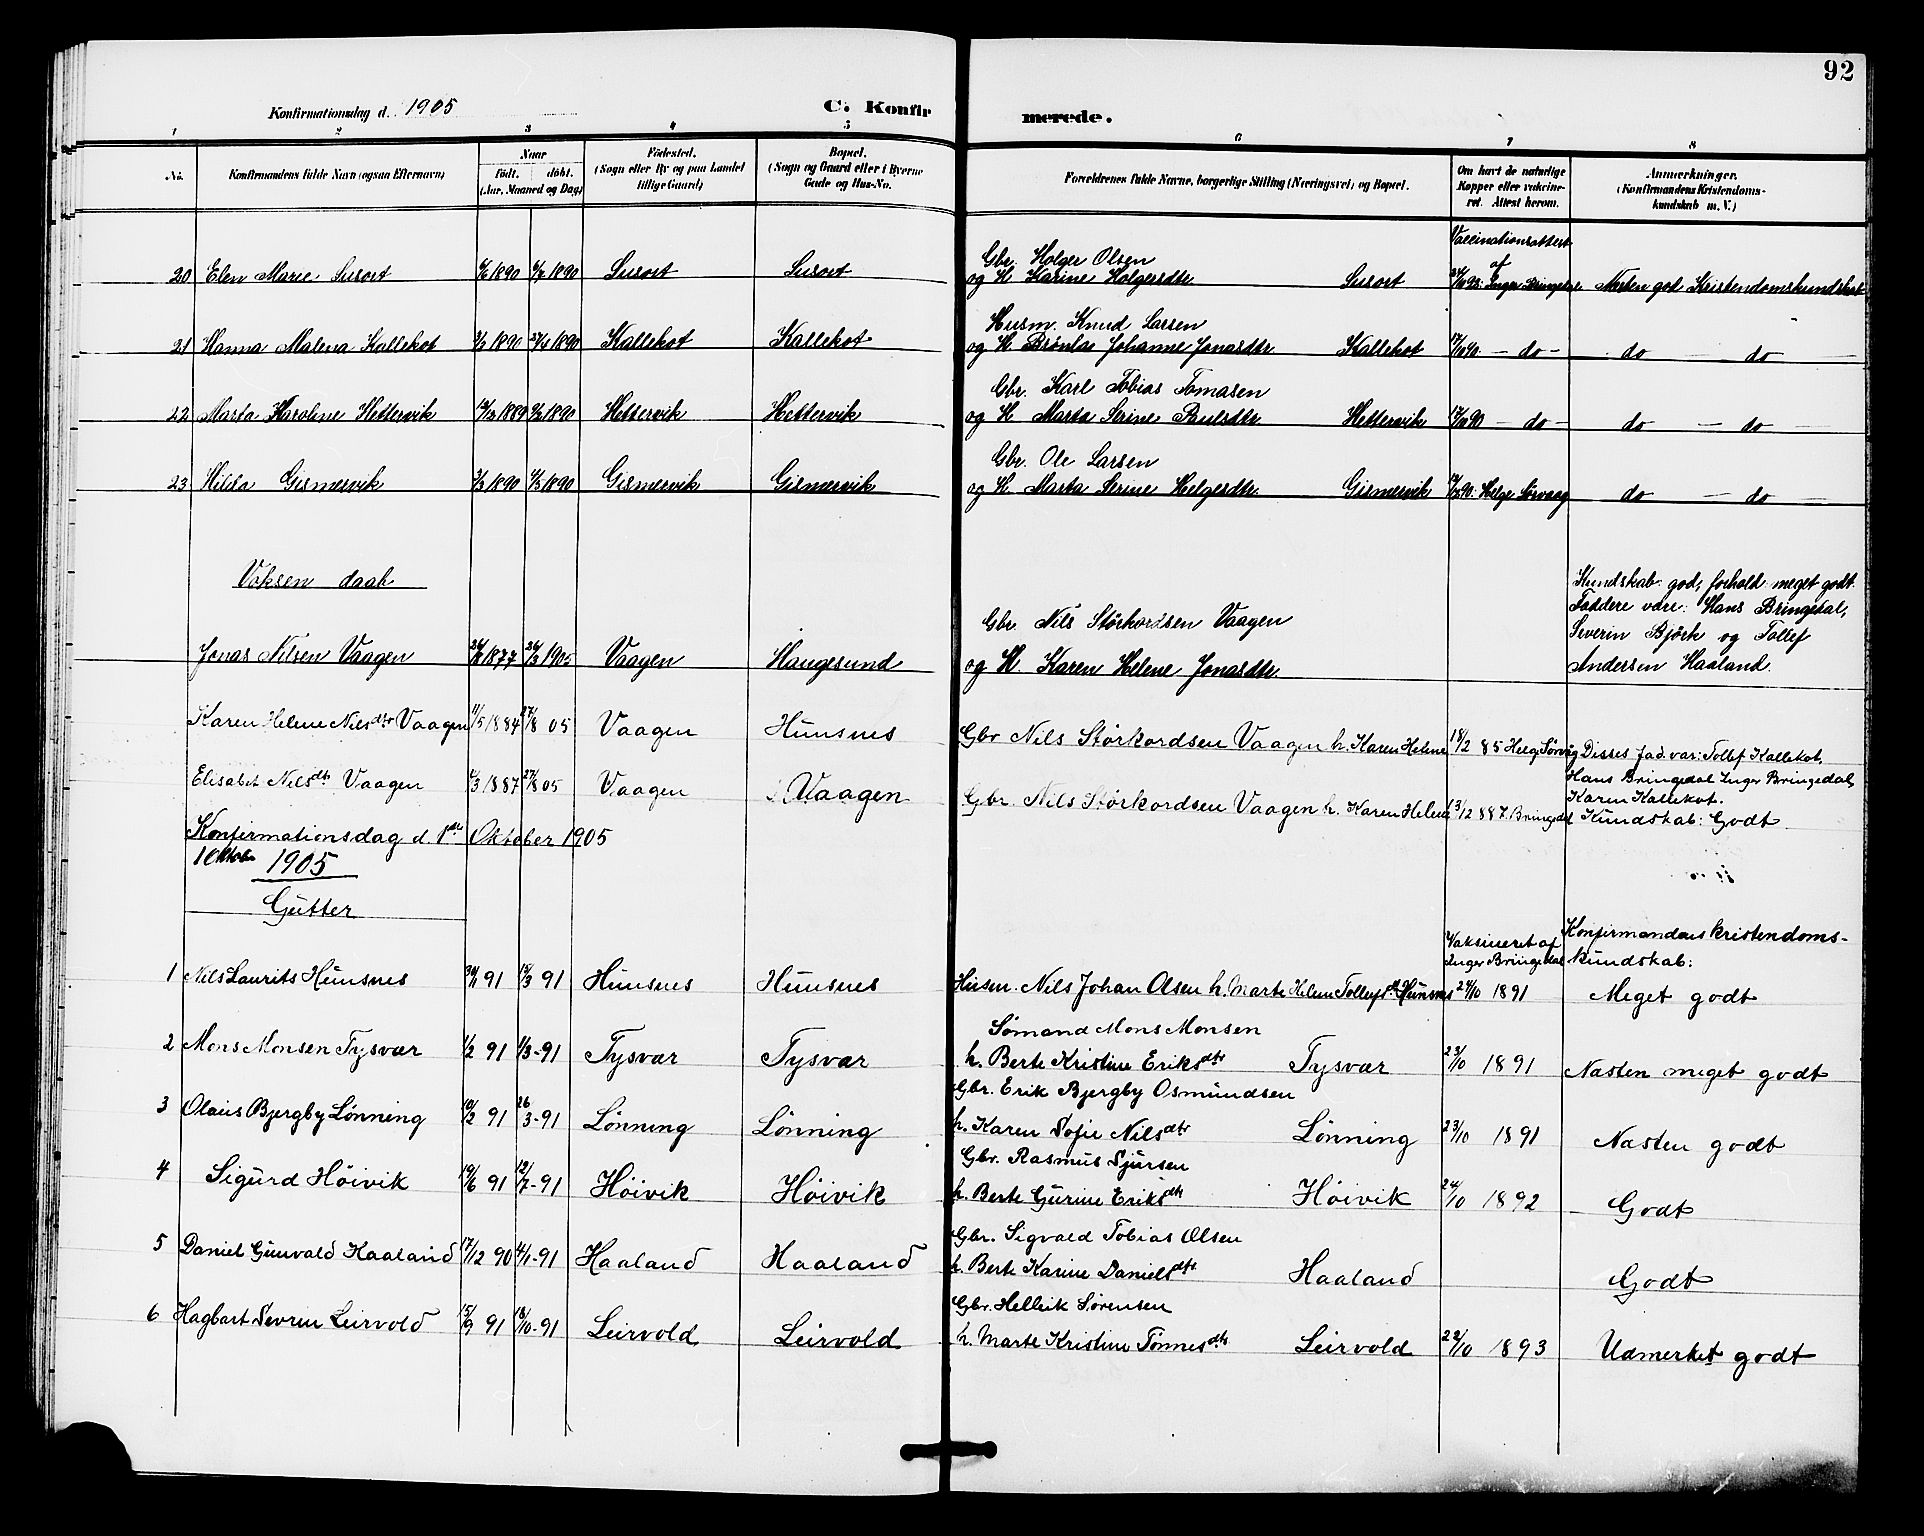 92
Konfirmationsdag d. 1905 C. Konfirmerede.
1 2 3 4 5 6 7 8
No. Konfirmandens fulde Navn (ogsaa Efternavn) Naar födt. döbt. (Aar, Maaned og Dag) Födested. (Sogn eller By og paa Landet tillige Gaard) Bopæl. (Sogn og Gaard eller i Byerne Gade og Hus-No. Forældrenes fulde Navne, borgerlige Stilling (Næringsvei) og Bopæl. Om havt de naturlige Kopper eller vakcineret. Attest herom. Anmerkninger. (Konfirmandens Kristendomskundskab m. V.)
Vaccinationsattest af
Gbr. Holger Olsen
20 Elen Marie Susort 1890 1890 Susort Susort og H. Karine Holgersdtr Susort Inger Bringedal Næsten god Kristendomskundskab
Husm. Knud Larsen
21 Hanna Malena Kallekot 1890 1890 Kallekot Kallekot og H. Johanne Jonasdtr Kallekot 17/10 90 - do - do - do -
Gbr. Karl Tobias Tomasen
22 Marta Karoline Hettervik 1889 1890 Hettervik Hettervik og H. Marta Serine Paulsdtr Hettervik 17/10 90 - do - do - do -
Gbr. Ole Larsen
23 Hilda Gismervik 1890 1890 Gismervik Gismervik og H. Marta Serine Helgesdtr. Gismervik 90: Helge Sörvaag do - do -
Voksen daab
Kundskab: god, forhold: meget godt.
Faddere vare: Hans Bringedal,
Gbr. Nils Störkordsen Vaagen
Severin Björk og Tollef
Jonas Nilsen Vaagen 1877 1905 Vaagen Haugesund og H. Karen Helene Jonasdtr. Andersen Haaland.
Karen Helene Nilsdtr Vaagen 11/5 1884 27/8 05 Vaagen Hunsnes Gbr Nils Störkordsen Vaagen h. Karen Helene 18/2 85 Helge Sörvåg Disses fad. var: Tollef Kallekot,
Hans Bringedal Inger Bringedal,
Elisabet Nilsdtr Vaagen /3 1887 27/8 05 Vaagen Vaagen Gbr. Nils Störkordsen Vaagen h. Karen Helene 13/12 887. Bringedal Karen Kallekot.
Kundskab: Godt
Konfirmationsdag d. 1ste Oktober 1905
1 Oktober 1905
Gutter
Vaksineret af Inger Bringedal
Konfirmandens kristendomskundskab:
1 Nils Laurits Hunsnes 91 15/3 91 Hunsnes Hunsnes Husm. Nils Johan Olsen h. Marte Helene Tollefsdt Hunsnes 24/10 1891 Meget godt
Sömand Mons Monsen
2 Mons Monsen Tysvær 1/2 91 1/3-91 Tysvær Tysvær h. Berte Kristine Eriksdtr Tysvær 23/10 1891 Næsten meget godt
Gbr. Erik Bjergby Osmundsen
3 Olaus Bjergby Lönning 10/2 91 26/3-91 Lönning Lönning h. Karen Sofie Nilsdtr Lönning 23/10 1891 Næsten godt
Gbr. Rasmus Sjursen
4 Sigurd Höivik 19/6 91 12/7-91 Höivik Höivik h. Berte Gurine Eriksdtr Höivik 24/10 1892 Godt
Gbr. Sigvald Tobias Olsen
5 Daniel Gunvald Haaland 17/12 90 4/1-91 Haaland Haaland h. Berte Karine Danielsdtr Haaland Godt
Gbr. Hellvik Sörensen
6 Hagbart Sevrin Leirvold 15/9 91 18/10-91 Leirvold Leirvold h. Marte Kristine Tönnesdtr Leirvold 22/10 1893 Udmerket godt